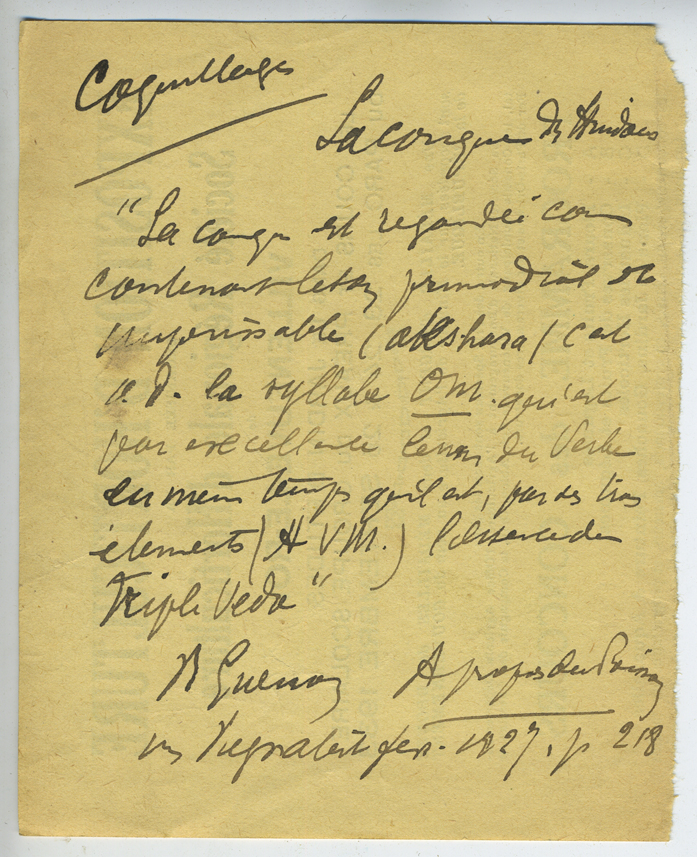 Coquillages
La conque des Hindous
"La conque est regardée com
contenant le son primordial et
impérissable (akshara) c'est
à. d. la syllabe OM. qui est
par excellence le nom du Verbe
en même temps qu'il est, par ses trois
éléments (A V M.) l'essence du
Triple Veda"
R Guenon A propos du Poisson
in Regnabit fev. 1927, p 218